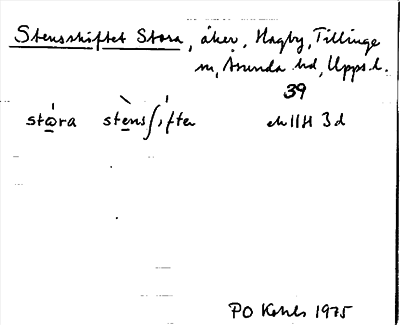 Stensskiftet Stora, åker, Hagby, Tillinge
sn, Åsunda hd, Upps.l.
39
stora stensʃifte 11H 3d
PO 1975